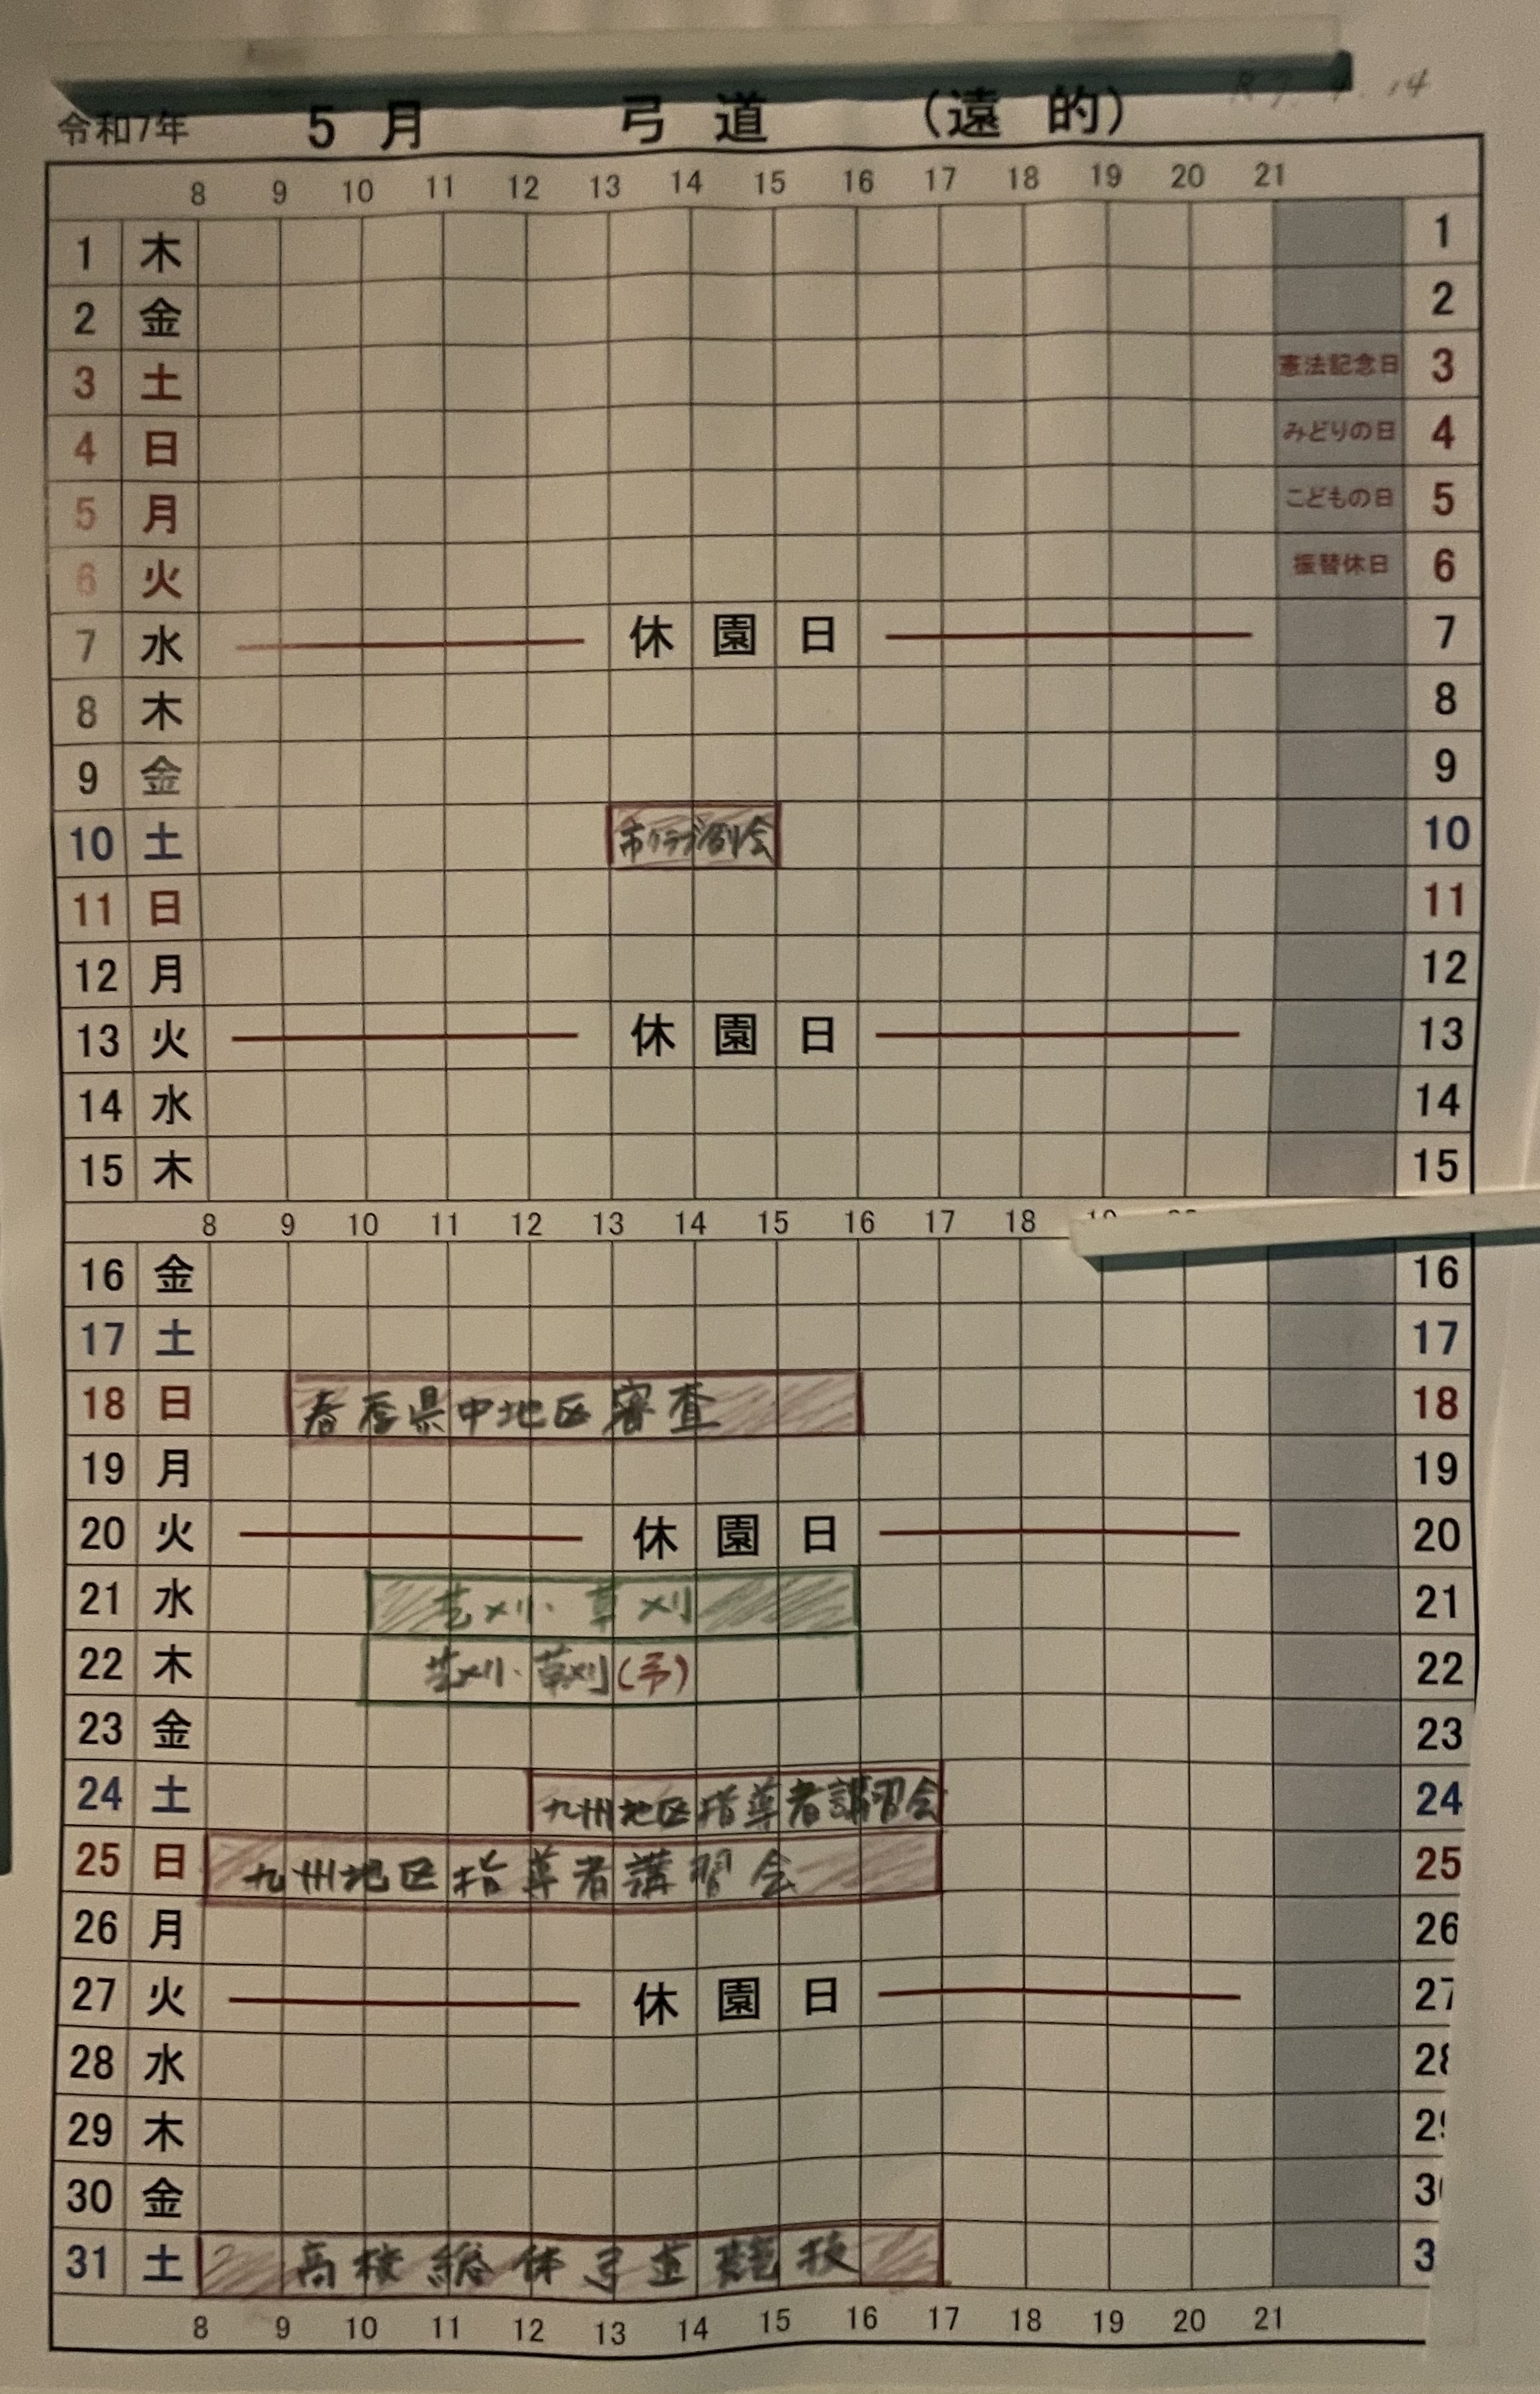 令和7年 5月 弓道 (遠的)
8 9 10 11 12 13 14 15 16 17 18 19 20 21
1 木 1
2 金 2
3 土 憲法記念日 3
4 日 みどりの日 4
5 月 こどもの日 5
6 火 振替休日 6
7 水 休園日 7
8 木 8
9 金 9
10 土 市クラブ例会 10
11 日 11
12 月 12
13 火 休園日 13
14 水 14
15 木 15
8 9 10 11 12 13 14 15 16 17 18
16 金 16
17 土 17
18 日 春季県中地区審査 18
19 月 19
20 火 休園日 20
21 水 芝刈・草刈 21
22 木 芝刈・草刈(予) 22
23 金 23
24 土 九州地区指導者講習会 24
25 日 九州地区指導者講習会 25
26 月 26
27 火 休園日 27
28 水 28
29 木 29
30 金
31 土 高校総体弓道競技
8 9 10 11 12 13 14 15 16 17 18 19 20 21